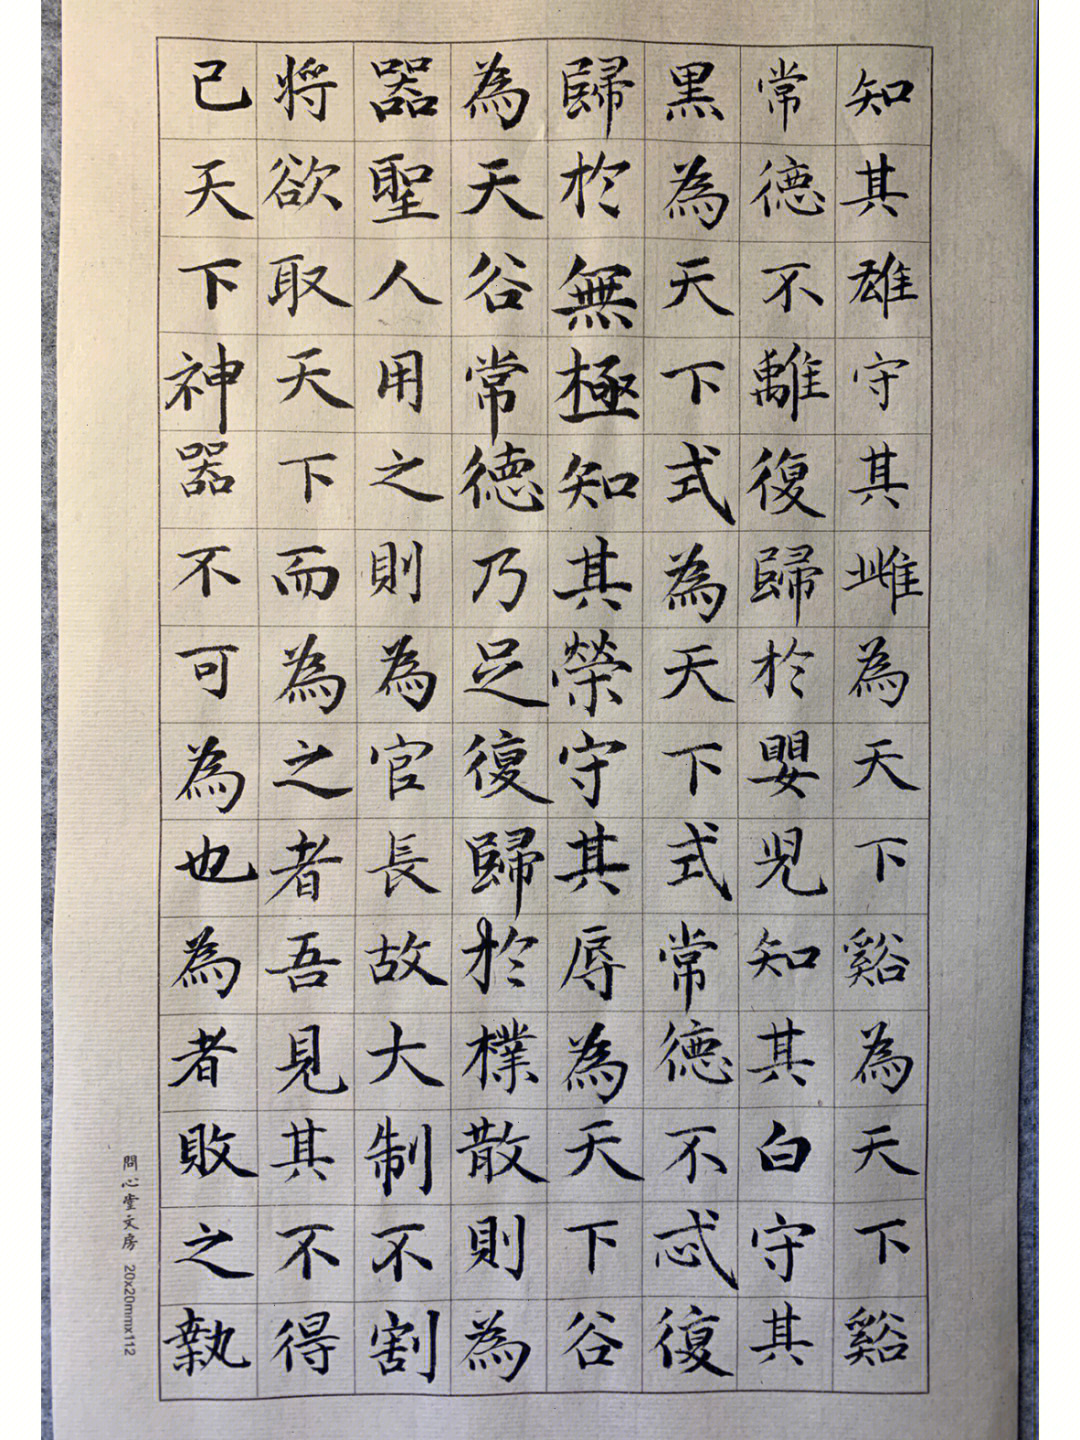 知其雄守其雌為天下谿為天下谿
常德不離復歸於嬰兒知其白守其
黑為天下式為天下式常德不忒復
歸於無極知其榮守其辱為天下谷
為天谷常德乃足復歸於樸散則為
器聖人用之則為官長故大制不割
将欲取天下而為之者吾見其不得
已天下神器不可為也為者敗之執
問心堂文房 20x20mmx112